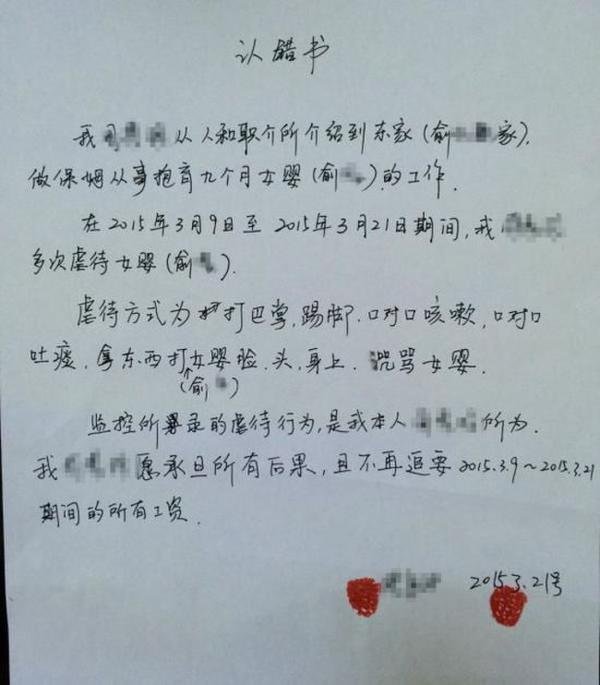 认错书
我司 从人和职介所介绍到东家(俞 家),
做保姆从事抱育九个月女婴(俞 ).的工作.
在2015年3月9日至2015年3月21日期间,我
多次虐待女婴(俞 ).
虐待方式为 打巴掌,踢脚.口对口咳嗽,口对口
吐痰,拿东西打女婴脸.头,身上.咒骂女婴.
(俞 )
监控所录的虐待行为,是我本人 所为.
我 愿承旦所有后果,且不再追要2015.3.9~2015.3.21
期间的所有工资.
2015.3.21号